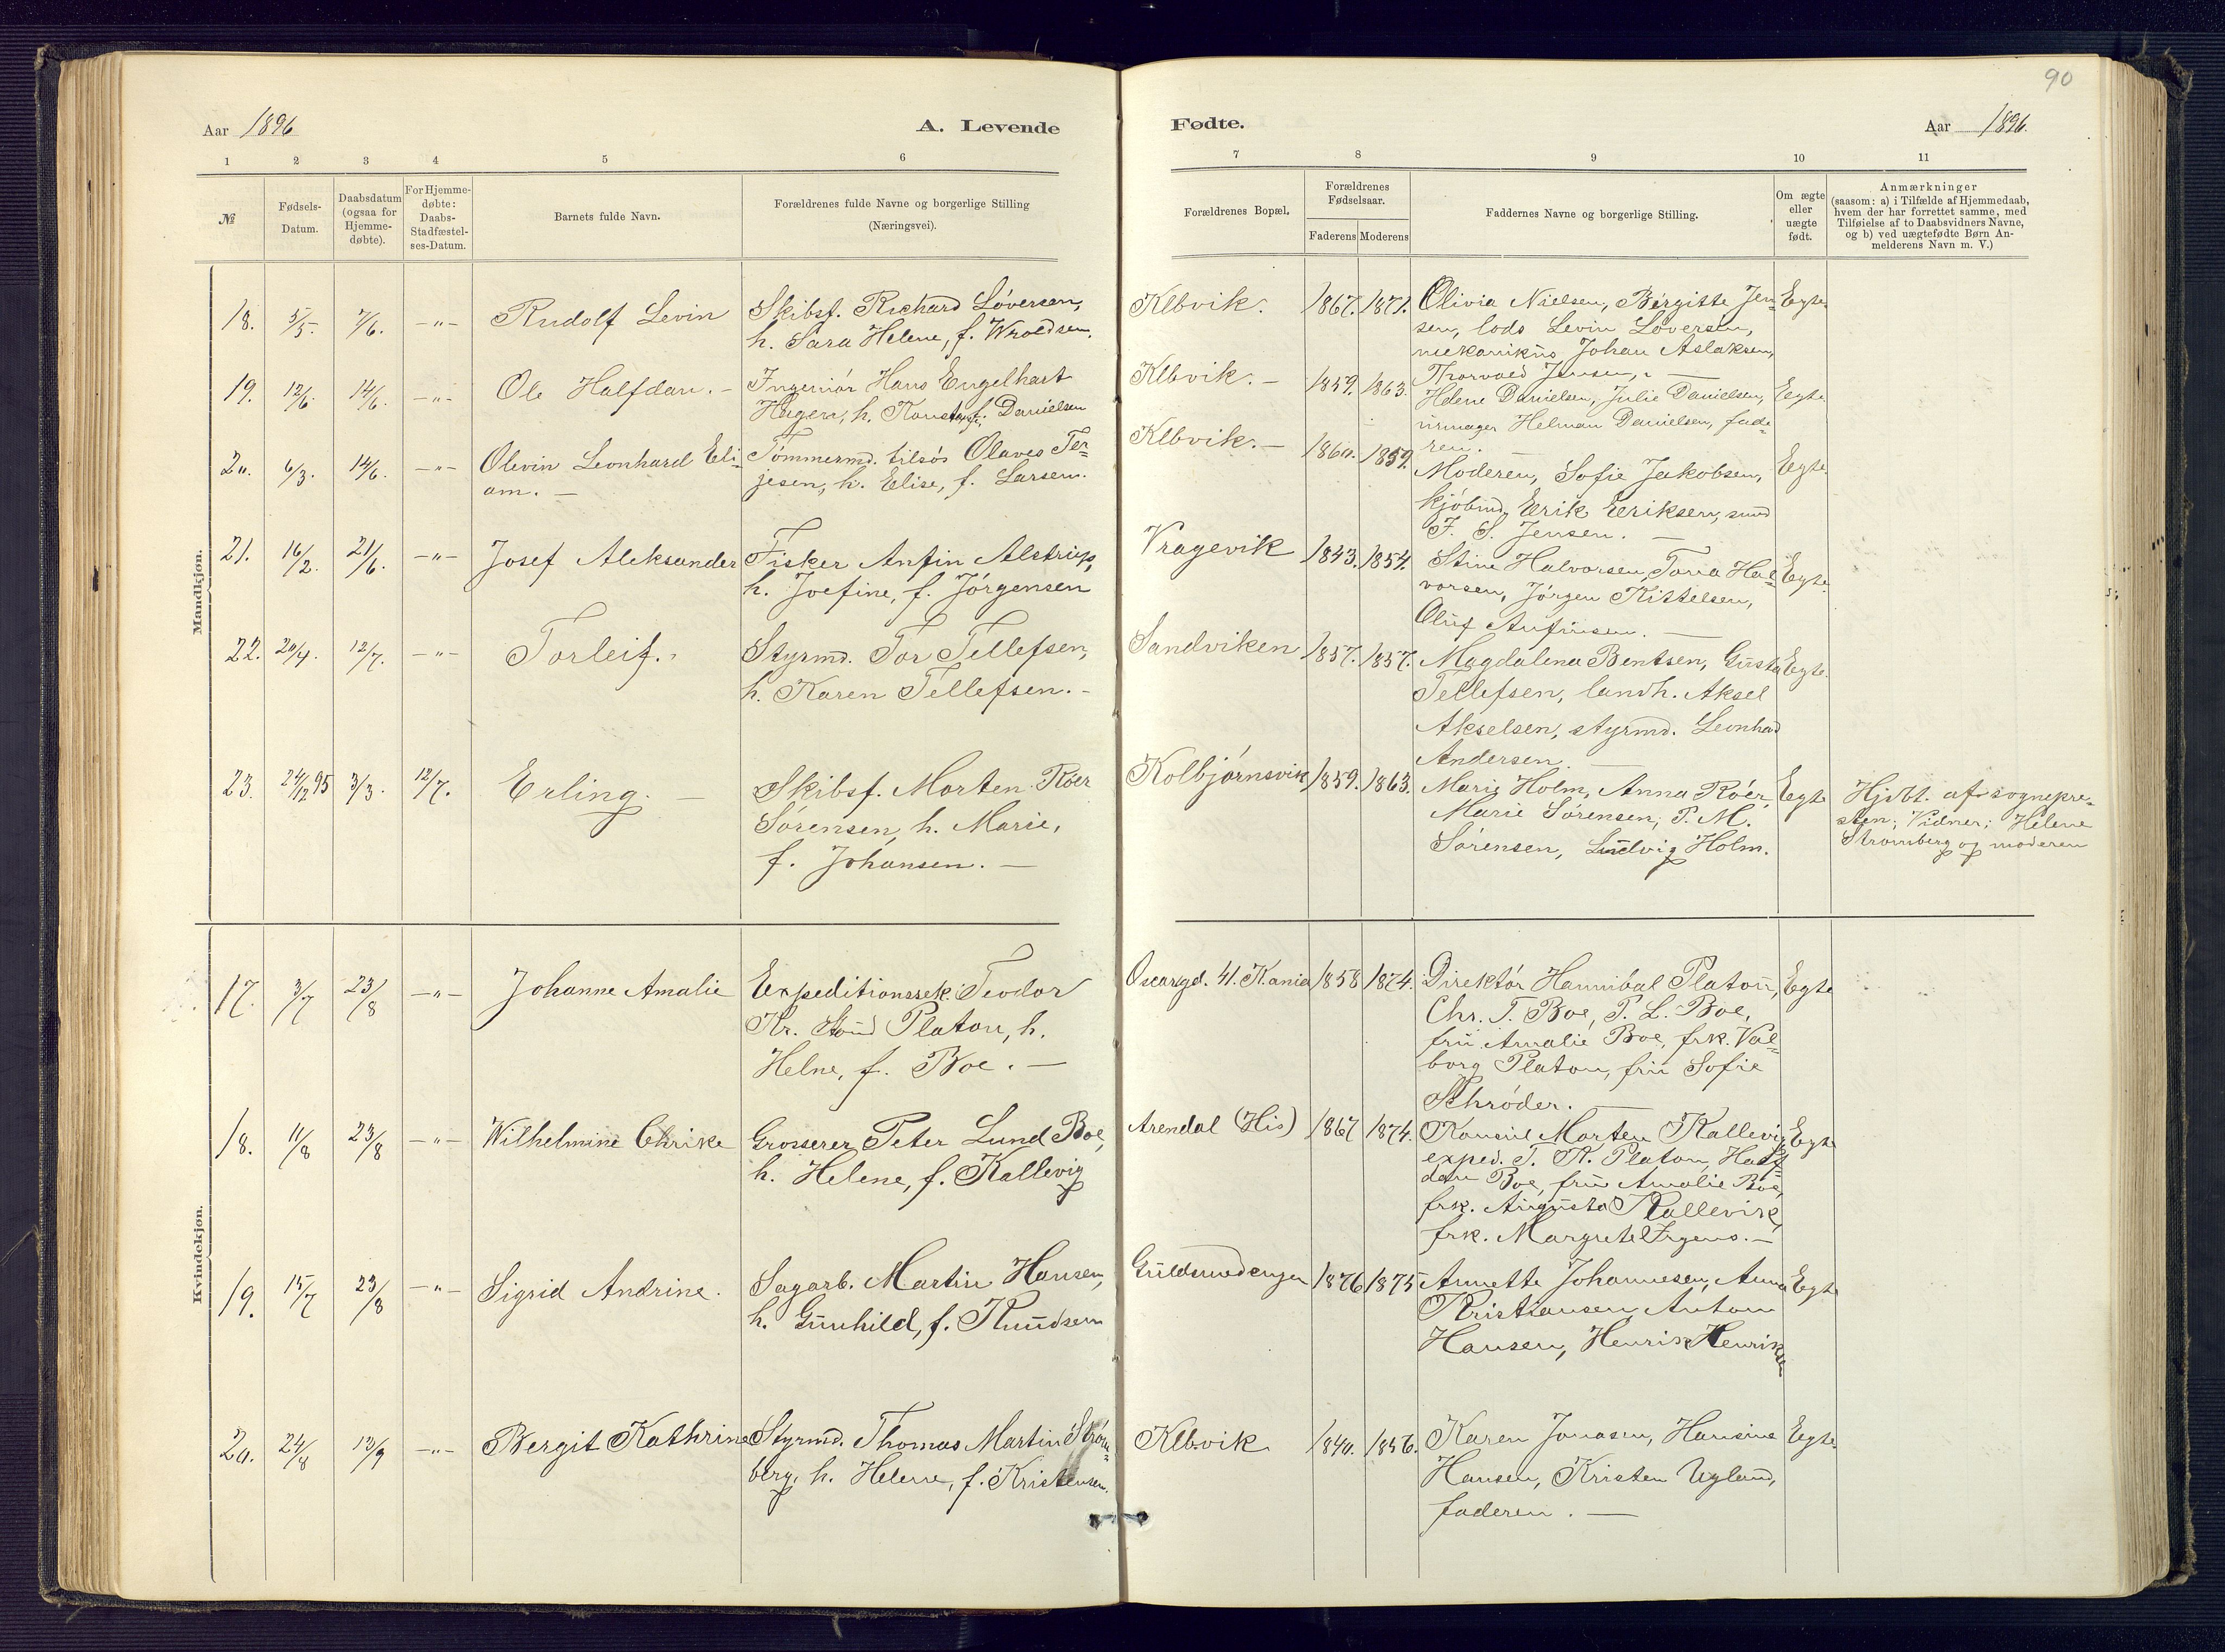 90
Aar 1896
A. Levende
Fødte.
Aar 1896.
1 2 3 4 5 6 7 8 9 10 11
№
Fødsels-
Datum.
Daabsdatum
(ogsaa for
Hjemme-
døbte).
For Hjemme-
døbte:
Daabs-
Stadfæstel-
ses-Datum.
Barnets fulde Navn.
Forældrenes fulde Navne og borgerlige Stilling
(Næringsvei).
Forældrenes Bopæl.
Forældrenes
Fødselsaar.
Faderens Moderens
Faddernes Navne og borgerlige Stilling.
Om ægte
eller
uægte
født.
Anmærkninger
(saasom: a) i Tilfælde af Hjemmedaab,
hvem der har forrettet samme, med
Tilføielse af to Daabsvidners Navne,
og b) ved uægtefødte Børn An-
melderens Navn m. V.)
Mandkjøn.
18. 5/5. 7/6. —"— Rudolf Levin
Skibsf. Richard Löversen,
h. Sara Helene, f. Wroldsen.
Klbvik. 1867. 1871.
Olivia Nielsen, Birgitte Jen-
sen, lods Levin Löversen,
mekanikus Johan Aslaksen,
Thorvald Jensen, —
Egte.
19. 12/6. 14/6. —"— Ole Halfdan. —
Ingeniör Hans Engelhart
Hagen, h. f. Danielsen
Klbvik. — 1859. 1863.
Helene Danielsen, Julie Danielsen,
urmager Helman Danielsen, fade-
ren. —
Egte.
20. 6/3. 14/6. —"— Olevin Leonhard Eli-
am. —
Tömmermd. tilsös Olaves Ter-
jesen, h. Elise, f. Larsen.
Klbvik. — 1860. 1859.
Moderen, Sofie Jakobsen,
kjöbmd. Erik Eriksen, smed
F. S. Jensen. —
Egte.
21. 16/2. 21/6. —"— Josef Aleksander
Fisker Anfin Alstrup,
h. Joefine, f. Jörgensen
Vragevik 1843. 1854.
Stine Halvorsen, Tona Hal-
vorsen, Jörgen Kittelsen,
Oluf Anfinsen. —
Egte.
22. 20/4. 12/7. —"— Torleif.
Styrmd. Tor Tellefsen,
h. Karen Tellefsen. —
Sandviken 1857. 1857.
Magdalena Bentsen, Gusta
Tellefsen, landh. Aksel
Akselsen, styrmd. Leonhard
Andersen. —
Egte.
23. 24/12 95 3/3. 12/7. Erling. —
Skibsf. Morten Röer
Sörensen, h. Marie,
f. Johansen. —
Kolbjörnsvik 1859. 1863.
Marie Holm, Anna Röer,
Marie Sörensen, P. M.
Sörensen, Ludvig Holm.
Egte
Hjdbt. af sognepre-
sten; Vidner; Helene
Strömberg og moderen
Kvindekjøn.
17. 3/7 23/8 —"— Johanne Amalie
Expeditionssek. Teodor
Kr. Platou, h.
Helne, f. Boe. —
Oscarsgd. 41. K.ania 1858 1874.
Direktör Hannibal Platou,
Chr. T. Boe, P. L. Boe,
fru Amalie Boe, frk. Val-
borg Platou, fru Sofie
Schröder. —
Egte
18. 11/8 23/8 —"— Wilhelmine Ulrike
Grosserer Peter Lund Boe,
h. Helene, f. Kallevig
Arendal (His) 1867 1874.
Konsul Morten Kallevig
exped. T. K. Platou, Half-
dan Boe, fru Amalie Boe,
frk. Augusta Kallevik,
frk. Margrete Irgens. —
Egte
19. 15/7 23/8 —"— Sigrid Andrine.
Sagarb. Martin Hansen,
h. Gunhild, f. Knudsen
Guldsmedengen 1876 1875
Annette Johannesen, Anna
Kristiansen, Anton
Hansen, Henrik Henriksen
Egte
20. 24/8 13/9 —"— Bergit Kathrine
Styrmd. Thomas Martin Ström-
berg, h. Helene, f. Kristensen.
Klbvik 1840. 1856.
Karen Jonasen, Hansine
Hansen, Kristen Ugland,
faderen. —
Egte.